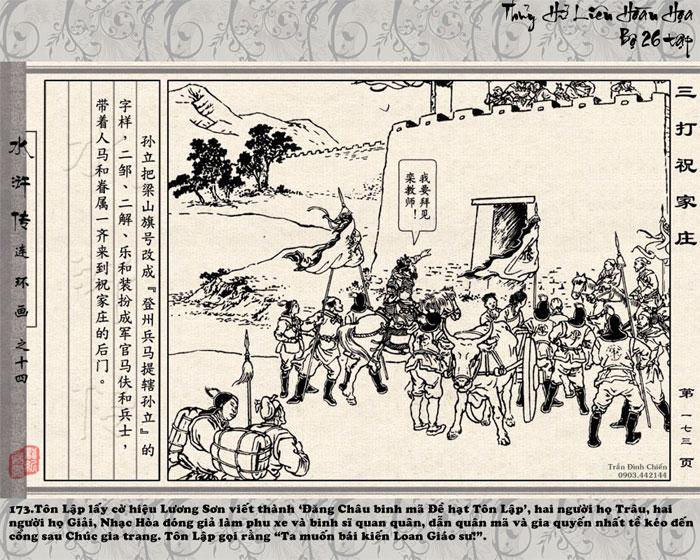 Thủy Hử Liên Hoàn Họa
Bộ 26 tập
三打祝家庄
孙立把梁山旗号改成『登州兵马提辖孙立』的
字样，二邹、二解、乐和装扮成军官马伕和兵士，
带着人马和眷属一齐来到祝家庄的后门。
我要拜见
栾教师！
水浒传连环画之十四
第一七三页
Trần Đình Chiến
0903.442144
173.Tôn Lập lấy cờ hiệu Lương Sơn viết thành ‘Đăng Châu binh mã Đề hạt Tôn Lập’, hai người họ Trâu, hai
người họ Giải, Nhạc Hòa đóng giả làm phu xe và binh sĩ quan quân, dẫn quân mã và gia quyến nhất tề kéo đến
cổng sau Chúc gia trang. Tôn Lập gọi rằng “Ta muốn bái kiến Loan Giáo sư!”.